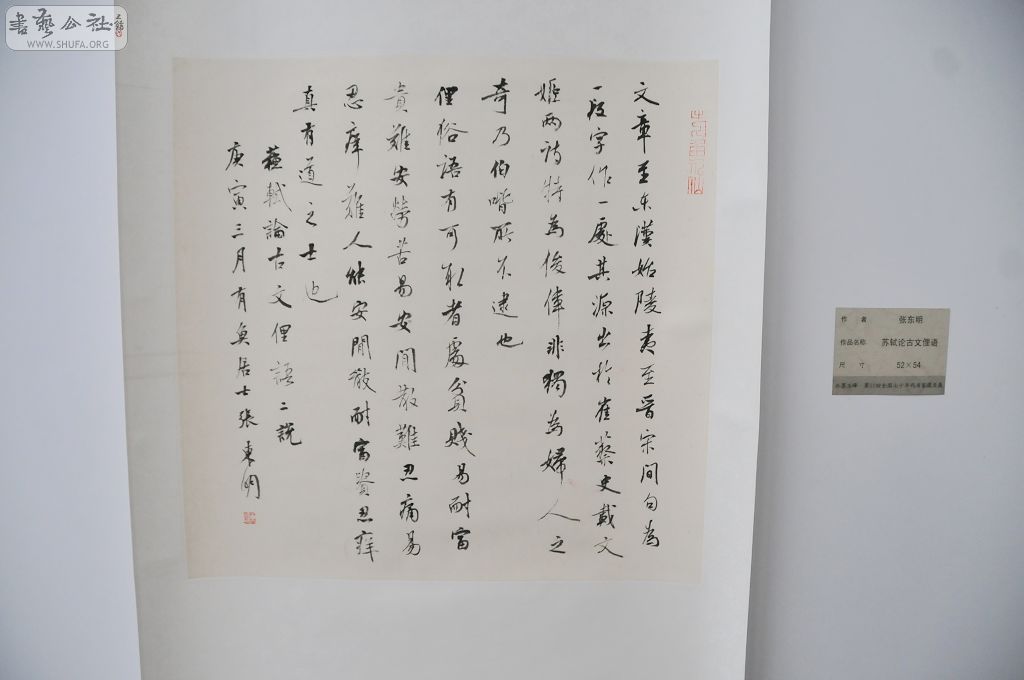 文章至东漢始陵夷至晋宋间句為
一段字作一處其源出於崔蔡史載文
姬两詩特為俊偉非獨為婦人之
奇乃伯喈所不逮也
俚俗語有可取者處貧賤易耐富
貴難安勞苦易安閒散難忍痛易
忍痒難人能安閒散耐富貴忍痒
真有道之士也
蘇軾論古文俚語二說
庚寅三月有魚居士張東明
作者 张东明
作品名称 苏轼论古文俚语
尺寸 52×54
書藝公社
WWW.SHUFA.ORG